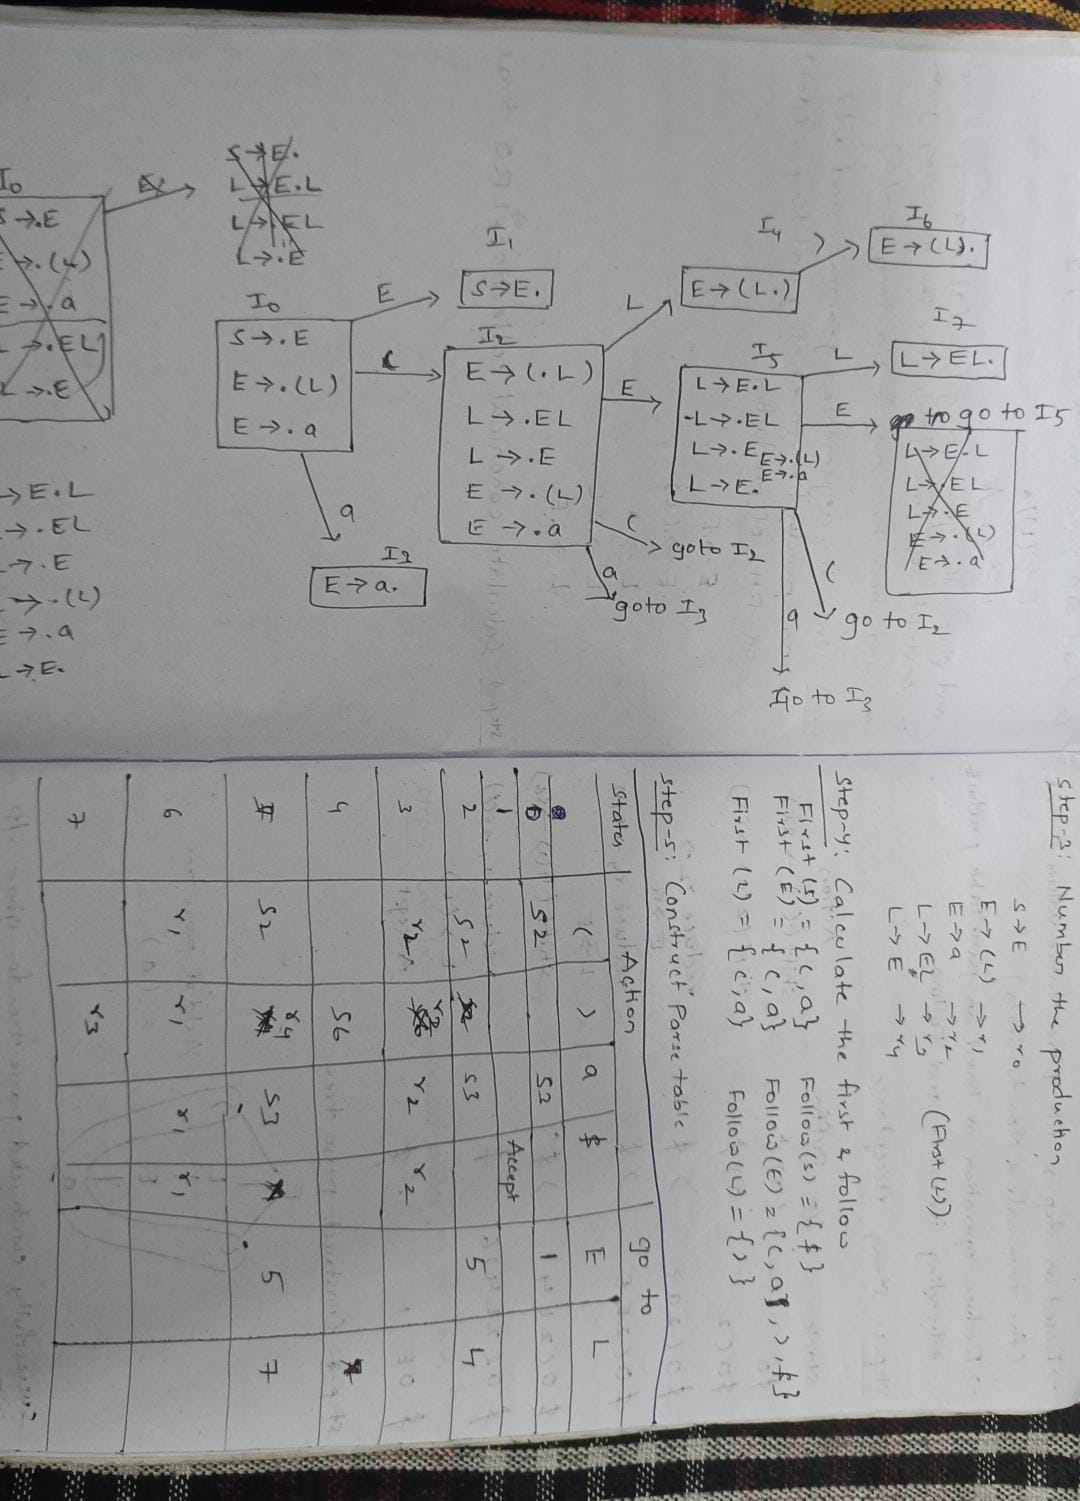 I0
S→.E
E→.(L)
E→.a
L→.EL
L→.E
→E.L
→.EL
→.E
→.(L)
E→.a
L→E.
S→E.
L→E.L
L→.EL
L→.E
I0
S→.E
E→.(L)
E→.a
E
(
a
I1
S→E.
I2
E→(.L)
L→.EL
L→.E
E→.(L)
E→.a
I3
E→a.
L
E
( goto I2
a goto I3
I4
E→(L.)
)
I6
E→(L).
I5
L→E.L
L→.EL
L→.E
E→.(L)
E→.a
L→E.
L
E
I7
L→EL.
go to I5
L→E.L
L→.EL
L→.E
E→.(L)
E→.a
( go to I2
a
go to I3
Step-3: Number the production
S→E →r0
E→(L) →r1
E→a →r2
L→EL →r3 (First(L))
L→E →r4
Step-4: Calculate the first & follow
First(S) = {(,a} Follow(S) = {$}
First(E) = {(,a} Follow(E) = {(,a,),$}
First(L) = {(,a} Follow(L) = {)}
Step-5: Construct Parse table
States Action go to
( ) a $ E L
0 S2 S3 1
1 Accept
2 S2 S3 5 4
3 r2 r2 r2 r2
4 S6
5 S2 r4 S3 5 7
6 r1 r1 r1 r1
7 r3